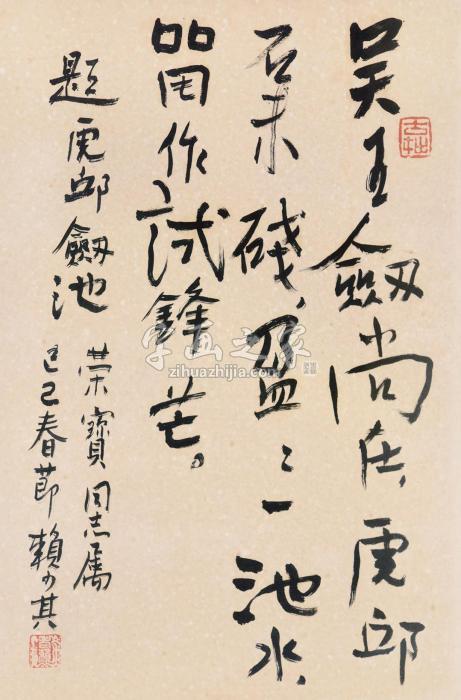 吴王劔尚在，虎邱
石未残，盈〻一池水，
留作試鋒芒。
題虎邱劔池
荣寶同志属
己巳春節 賴少其
字画之家
zihuazhijia.com